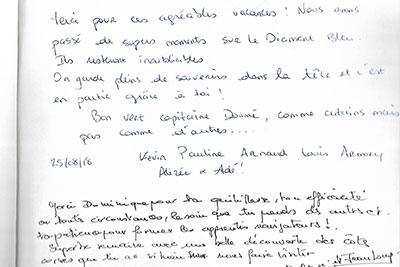 Merci pour ces agréables vacances ! Nous avons
passé de supers moments sur le Diamant Bleu.
Ils resteront inoubliables
On garde pleins de souvenirs dans la tête et c'est
en partie grâce à toi !
Bon vent capitaine Doumé, comme certains mais
pas comme d'autres.....
25/08/18 Kevin Pauline Arnaud Louis Amaury
Alizée & Adé !
Merci Dominique pour ta gentillesse, ton efficacité
en toutes circonstances, le soin que tu prends des autres et
ta patience pour former les apprentis navigateurs !
Superbe semaine avec une belle découverte des côtes
corses que tu as si bien su nous faire visiter